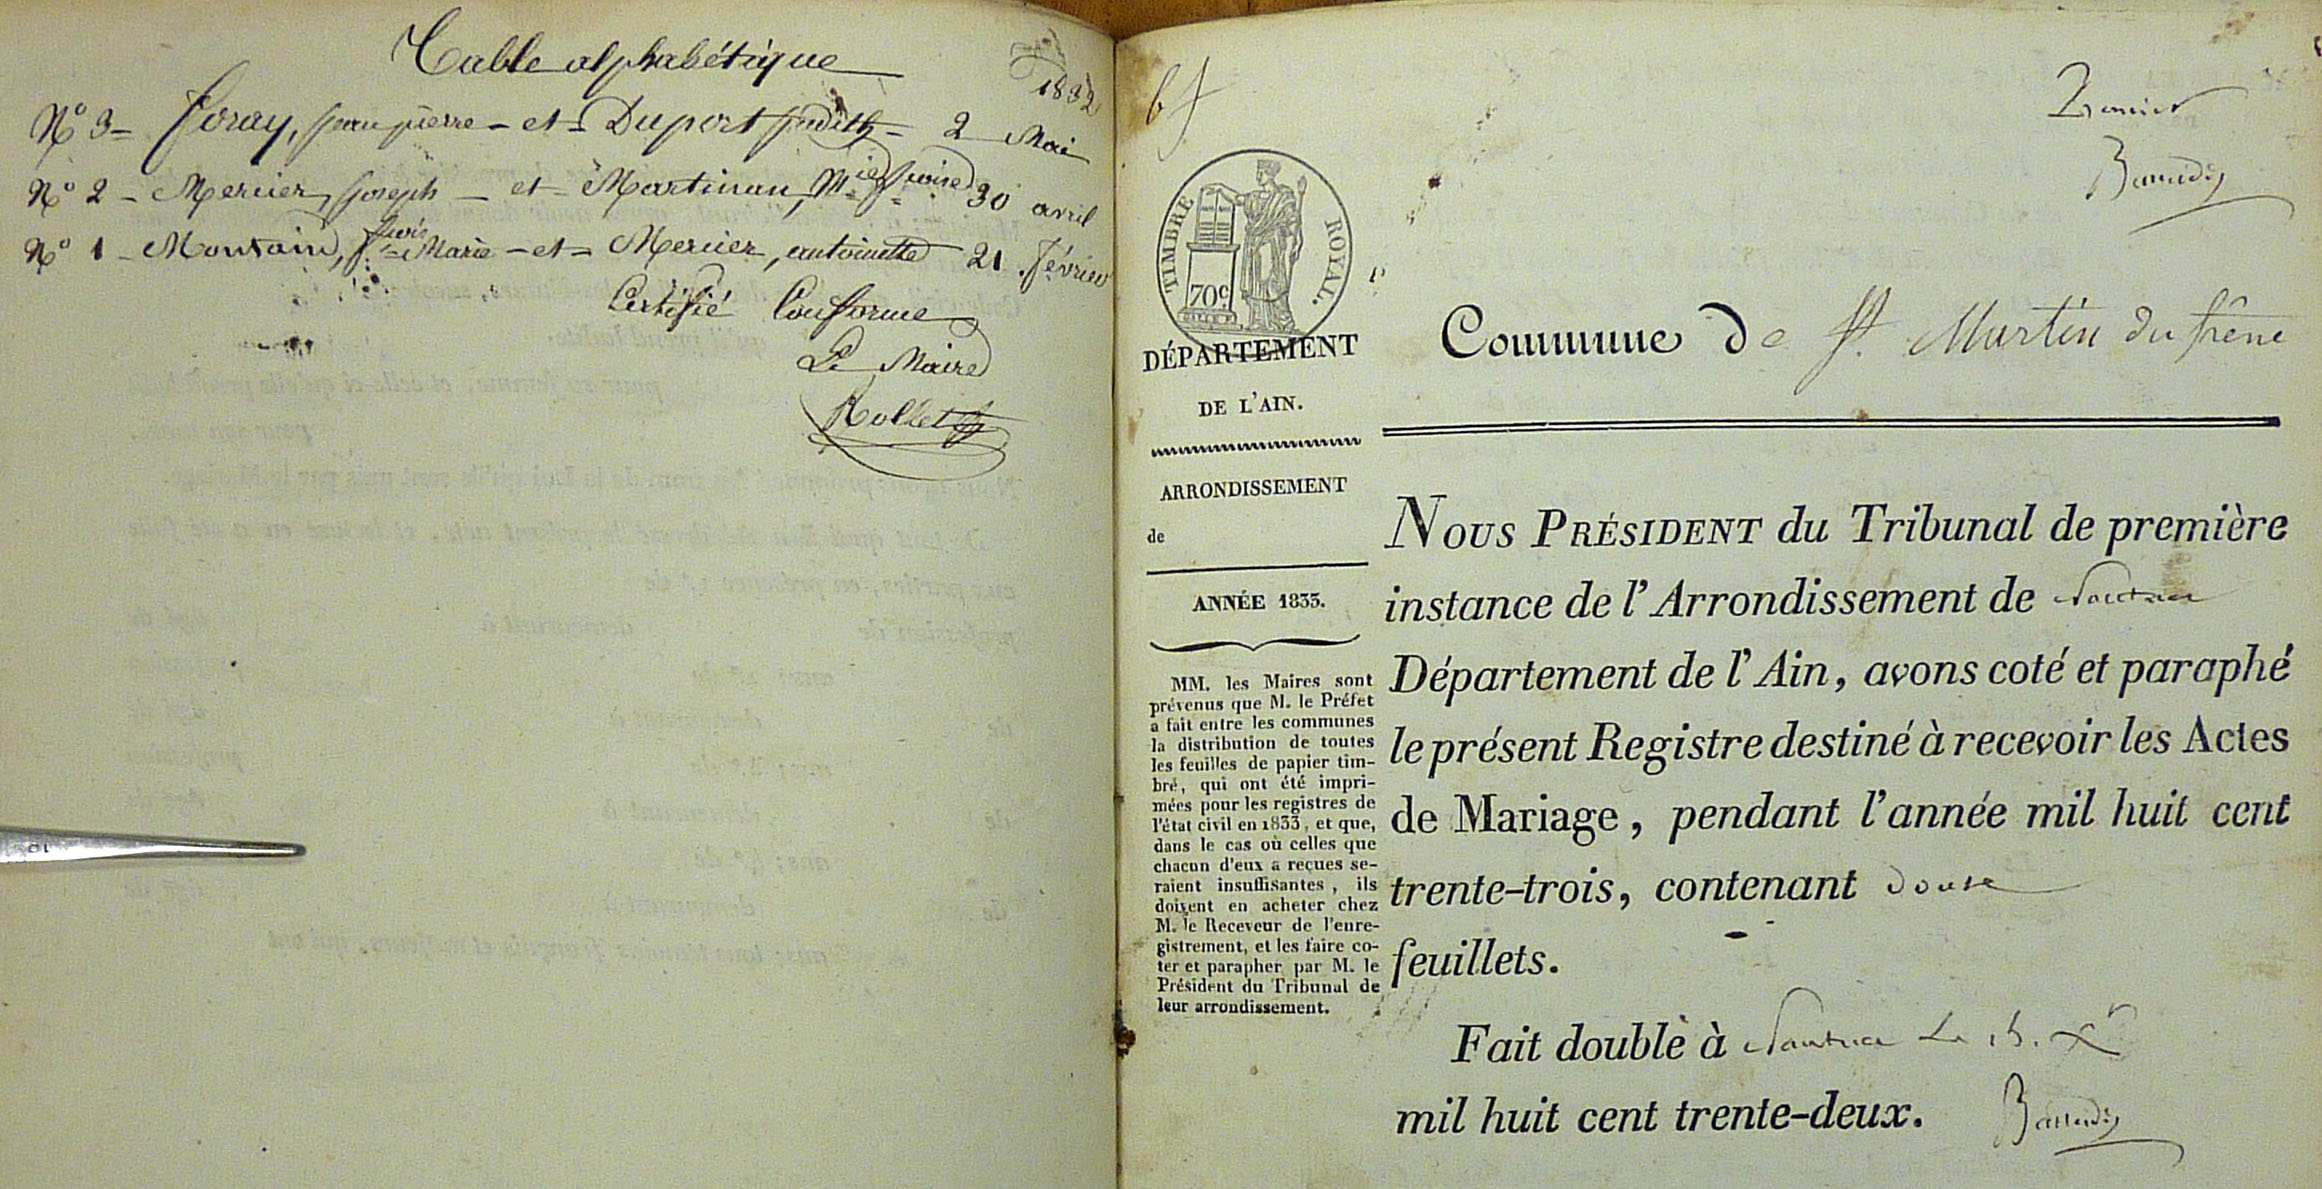 Table alphabétique
1832
N° 3 - Joray, jean pierre - et - Duport judith - 2 Mai
N° 2 - Mercier, joseph - et - Martinan, Mie 30 avril
N° 1 - Montain, fçois Marie - et - Mercier, antoinette 21 février
Certifié Conforme
Le Maire
Rollet
Premier
TIMBRE ROYAL.
70c
Commune De St. Martin du frêne
DÉPARTEMENT
DE L'AIN.
ARRONDISSEMENT
de
ANNÉE 1833.
MM. les Maires sont
prévenus que M. le Préfet
a fait entre les communes
la distribution de toutes
les feuilles de papier tim-
bré, qui ont été impri-
mées pour les registres de
l'état civil en 1833, et que,
dans le cas où celles que
chacun d'eux a reçues se-
raient insuffisantes, ils
doivent en acheter chez
M. le Receveur de l'enre-
gistrement, et les faire co-
ter et parapher par M. le
Président du Tribunal de
leur arrondissement.
NOUS PRÉSIDENT du Tribunal de première
instance de l'Arrondissement de Nantua
Département de l'Ain, avons coté et paraphé
le présent Registre destiné à recevoir les Actes
de Mariage, pendant l'année mil huit cent
trente-trois, contenant douze
feuillets.
Fait double à Nantua Le 15. Xr
mil huit cent trente-deux.